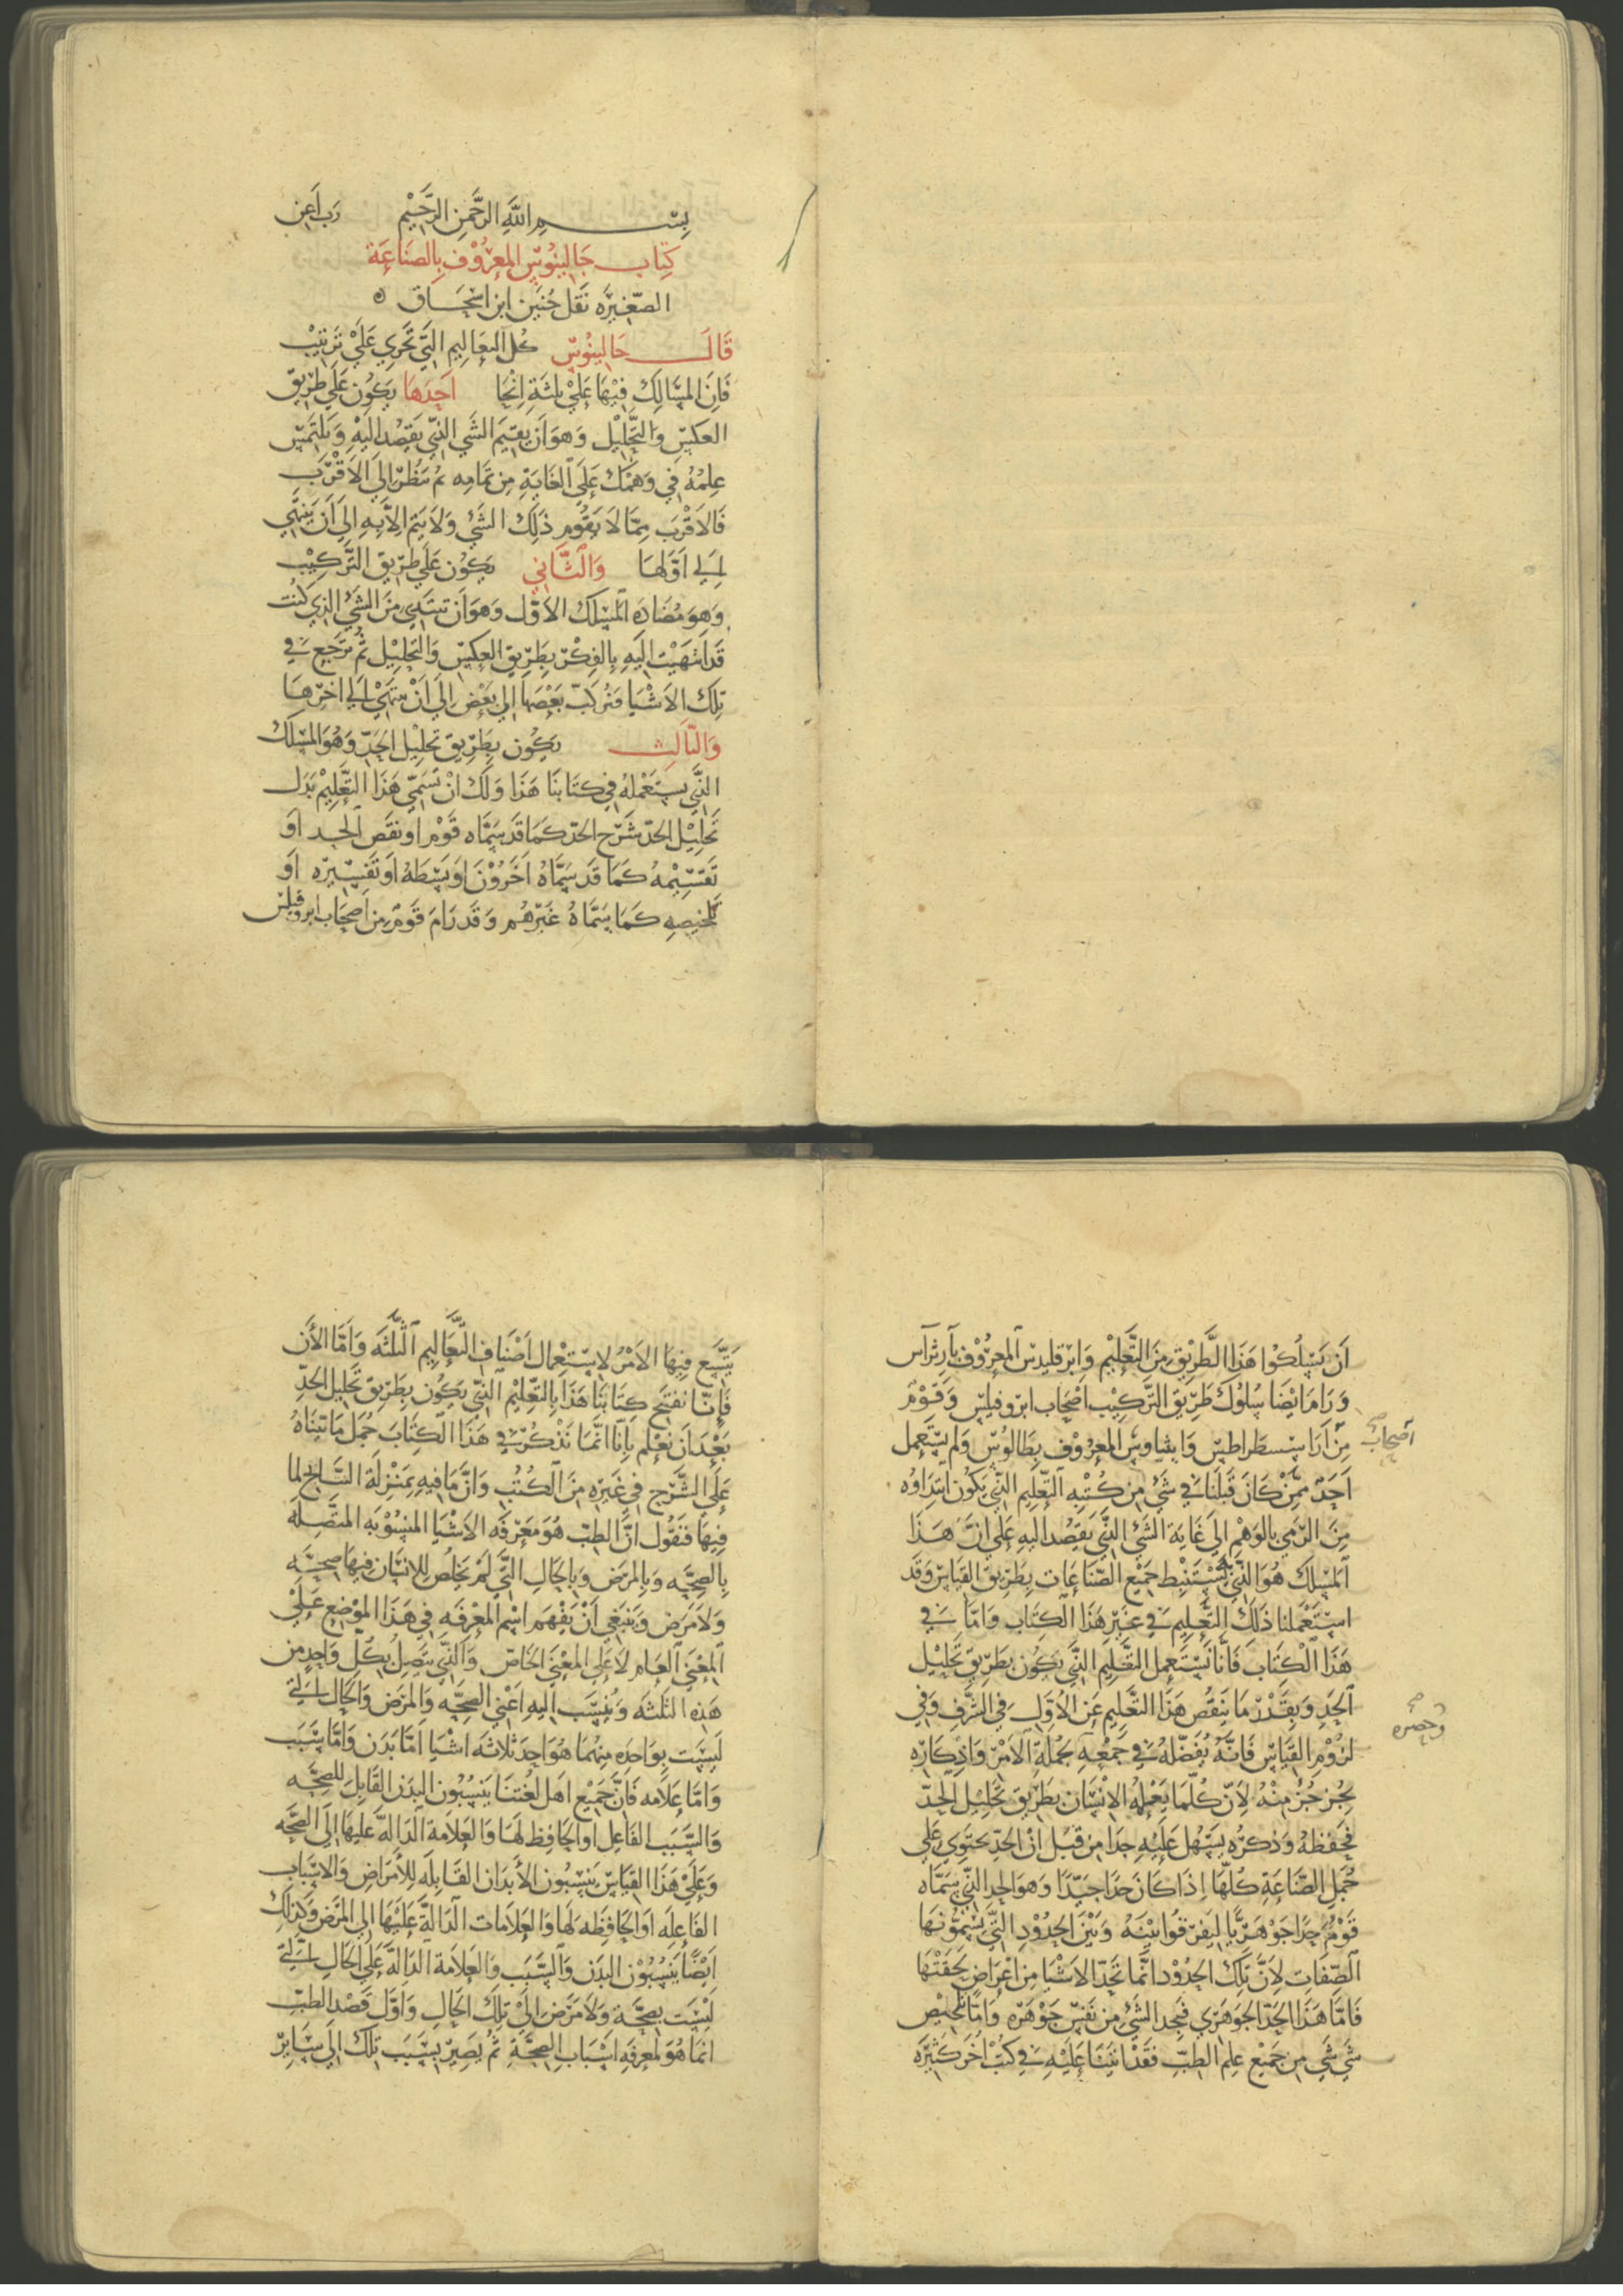 بِسْمِ اللَّهِ الرَّحْمَنِ الرَّحِيْمِ رَب اَعِن
كِتاب جَالينُوْس المعرُوْف بِالصَنَاعَة
الصَغِيرَه نَقل حُنَين ابن اسحَاق
قَالَ جَالينُوْس كل التعَاليم التَّي تَجري عَلَيْ تَرتيْب
فَانَ المسَالك فيْهَا عَلَيْ ثلثَةِ انْحَا اَحَدهَا يَكوُن عَلَي طَريق
العَكس وَالتحَليْل وَهوَ اَن تقيم الشي الذي تقصُد اليْهِ وَتلتَمس
عِلمُهُ في وَهمك عَلَى الغَايَةِ مِن تمَامِه ثم تنظُر الي الاَقْرَب
فَالاَقْرَب مِمَّا لاَ يَقُوم ذَلِكَ الشَيْ وَلاَ يَتم الاَّ بِهِ الي اَن يَنتَهي
الي اوَّلهَا وَالثَّاني يَكوُن عَلَي طَريق التَّركيْب
وَهوَ مُضَاده المَسْلكَ الاَوَّل وَهوَ اَن تبتَدي مِنَ الشَيْ الذِي كُنت
قَد انتهَيْت اليَهِ بِالفِكْر بِطَريق العَكس وَالتحليْل ثُمَّ تَرجَع في
تِلكَ الاَشْيَا فتركبّ بَعْضهَا الي بَعْض الَي اَنْ تنتهيْ الَي اخرهَا
وَالثالِث يَكوُن بِطَريق تحليْل الحَدّ وَهُوَ المَسْلَك
الذَّي نستَعْملهُ في كتَابنَا هَذَا وَلكَ انْ تسَمّي هَذَا التَّعليْم بَدَل
تَحَليْل الحدّ شَرْح الحدّ كمَا قَد سَمَّاه قَوْم او نقَص الحد اَوْ
تقسّيْمهُ كَمَا قَد سَمَّاهُ اَخَرُوْنَ او بَسْطهُ اَو تفسيْره اَو
تلخيصه كَمَا سَمَّاهُ غَيْرهُم وَقَد رَامَ قَومٌ مِن اَصحَاب ابروفِيلس
اَن يَسْلُكوُا هَذَا الطَّرِيْق مِنَ التَّعليْم وَابرقليدس المعرُوْف بارثراس
وَرَامَ ايْضَا سُلوُك طَريْق التركيْب اصْحَاب ابروفيلس وَقَوْمٌ
مِنْ اَرَاسسطراطس وَايثناوس المعرُوْف بطَالوُس وَلم يَستَعمل
اصحَاب
اَحَدٌ مِمَّنْ كَانَ قَبلنَا في شَيْ مِن كُتبهِ التَّعليم الذَّي يَكوُن ابتدَاوُه
مِنَ الرَمي بالوَهْم الَي غَايَة الشَيْ الذَّي يَقصُد اليهِ عَلَي انَّ هَذَا
المَسْلكَ هُوَ الذَّي بِه يستنْبط جَميْع الصّنَاعَات بطَريْق القيَاس وَقَد
استَعْملنا ذَلِكَ التَّعليم في غَيْر هَذَا الكتَاب وَامَّا في
هَذَا الْكتَاب فَانَّا نَستَعمل التعَّليم الذَّي يَكون بطَريق تَحليْل
الحَدِ وَبِقَدْر مَا يَنقُص هَذَا التَّعليم عَن الاوَّل في الشرَّف وَفي
وحصره
لزُوْم القيَاس فَانَّهُ يَفضّلهُ في جَمْعِهِ بجُملَةِ الاَمْر وَاذكاره
بجُز جُزٌ مِنْهُ لاَنّ كلمَا يَعْلمهُ الاِنْسَان بطَريْق تَحليْل الحَدّ
فحَفظهُ وَذكرهُ يسَهُل عَليْهِ جدَا مِن قَبل انْ الحَدّ يحتوَي عَلَي
جُمَل الصّنَاعَةِ كُلّهَا اِذَا كَانَ حَدًا جَيّدًا وَهوَ الحد الذَّي يسَمَّاه
قَوْمٌ حَدًا جَوْهَريًّا ليَفرقوُا بيْنَهُ وَبَيْنَ الحدُوْدِ التَّي يسَمُّوْنهَا
الصِّفَاتِ لاَنَّ تِلكَ الحدُوْد انَّما تَحَدّ الاَشيَا مِن اعْرَاض لحَقَتْهَا
فَامَّا هَذَا الحَدّ الجَوهَري فيحِد الشَيْ مِن نَفس جَوْهَرَه وَامَّا تلخيْص
شي شي مِن جَميْع علم الطبِّ فَقَدْ اتينَا عَليْهِ في كتُبٌ اخَر كثيْرَه
يَتَّسِع فِيهَا الاَمْرُ لاِستِعْمال اَصْنَاف التَّعَاليم الثلَثَه وَاَمَّا الأَن
فَانَّا نفتَتح كِتَابنَا هَذَا بِالتَّعليْم الذَّي يَكوُن بِطَريْق تحَليْل الحَدِّ
بَعْدَ اَن نُعْلم بِانَّا انمَّا نَذكر في هَذَا الكتَابَ جُمَل مَا بينَاهُ
عَلَي الشَّرْح في غَيْره مِنَ الكُتُب وَانَّ مَا فيهِ بمَنْزلَةِ النتَايْج لما
فيهَا فَنَقُول انَّ الطبّ هُوَ مَعْرفَه الاَشْيَا المنسُوْبَه المتصِّلَه
بِالصِحَّه وَبِالمرَض وَبِالحَال التَّي لَمْ يَخلُص للاِنسَان فيهَا صِحَّه
وَلاَ مَرَض وَيَنبَغي اَنْ يَفهَم اسْم المَعْرفَهِ في هَذَا الموْضِع عَلَي
المعْني العَام لاَ عَلَي المعْني الخاصّ وَالذَّي يتصل بكُل وَاحِدٍ مِن
هَذِه الثلثَه وَيُنسَب اليهِ اَعْني الصِحَّه وَالمرَض وَالحَال التي
ليسَت بوَاحِدَه مِنهُمَا هُوَ احَد ثَلاَثه اشيَا امَّا بَدَن وَامَّا سَبَب
وَامَّا عَلاَمه فَانَّ جَميْع اَهل لغُتنَا يَنسُبُون البدَن القابِل للصِحَّه
وَالسَّبَب الفَاعل اَو الحَافظ لهَا وَالعَلاَمة الدَّالهَّ عَليهَا الَي الصِحَّه
وَعَلَيْ هَذَا القيَاس يَنسِبُون الأبدَان القَابلَه للأمرَاض وَالاسبَاب
الفَاعلَه اَو الحَافظَه لَهَا وَالعَلاَمات الدَّالةَّ عَليْهَا الي المرَض وَكَذلك
ايْضًا يَنسبُوْن البدَن وَالسَّبَب وَالعَلاَمَة الدَالةَّ عَلَي الحَال التَّي
ليسَت بصِحَّة وَلاَ مَرَض الَي تِلكَ الحَال وَاوَّل قَصْد الطبّ
انمَّا هُوَ لمعرفَه اسْبَاب الصِحَّةِ ثُم يَصِيْر بسَبَب تِلكَ الَي سَايِر